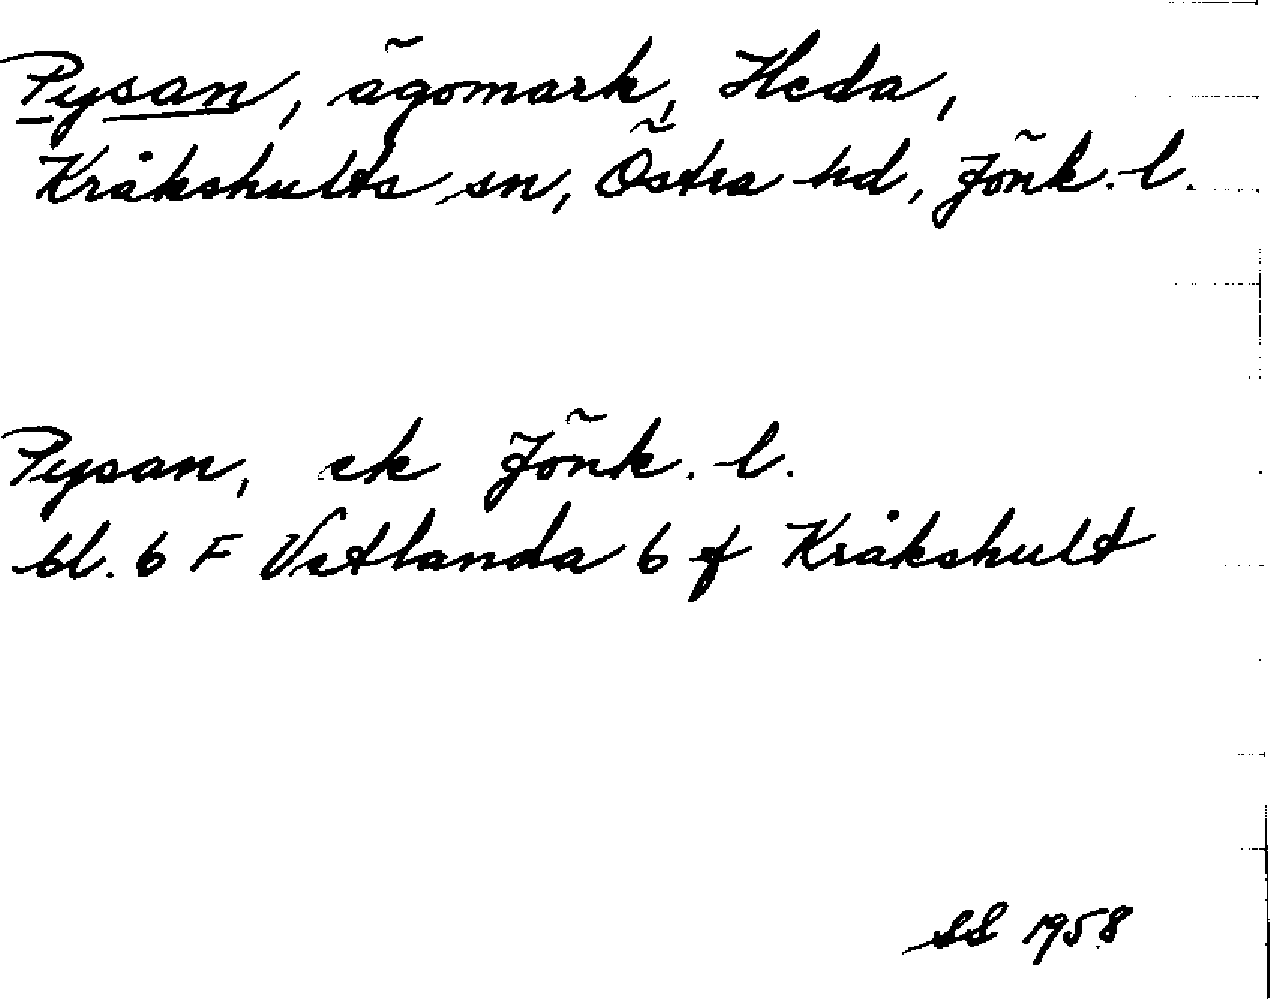 Pysan, ägomark, Heda,
Kråkshults sn, Östra hd, Jönk. l.
Pysan, ek Jönk. l.
bl. 6 F Vetlanda 6 f Kråkshult
SS 1958